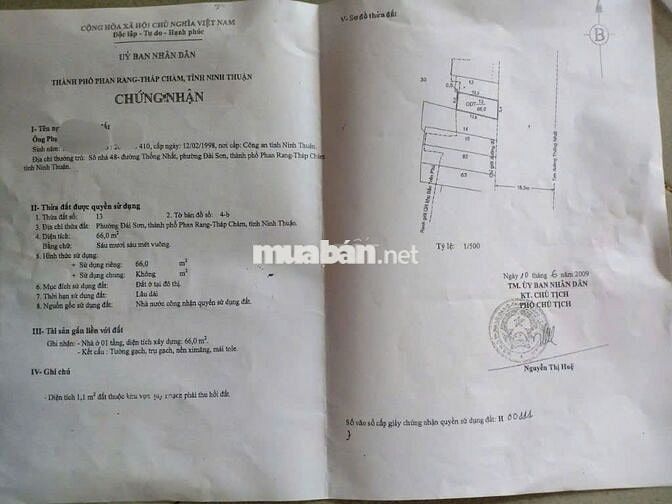 CỘNG HÒA XÃ HỘI CHỦ NGHĨA VIỆT NAM
Độc lập - Tự do - Hạnh phúc
UỶ BAN NHÂN DÂN
THÀNH PHỐ PHAN RANG-THÁP CHÀM, TỈNH NINH THUẬN
CHỨNG NHẬN
I- Tên
Ông
Sinh 410, cấp ngày 12/02/1998, nơi cấp: Công an tỉnh Ninh Thuận.
Địa chỉ thường trú: Số nhà 48- đường Thống Nhất, phường Đài Sơn, thành phố Phan Rang-Tháp Chàm
tỉnh Ninh Thuận.
II- Thửa đất được quyền sử dụng
1. Thửa đất số: 13 2. Tờ bản đồ số: 4-b
3. Địa chỉ thửa đất: Phường Đài Sơn, thành phố Phan Rang-Tháp Chàm, tỉnh Ninh Thuận.
4. Diện tích: 66,0 m²
Bằng chữ: Sáu mươi sáu mét vuông.
5. Hình thức sử dụng:
+ Sử dụng riêng: 66,0 m²
+ Sử dụng chung: Không m²
6. Mục đích sử dụng đất: Đất ở tại đô thị.
7. Thời hạn sử dụng đất: Lâu dài
8. Nguồn gốc sử dụng đất: Nhà nước công nhận quyền sử dụng đất.
III- Tài sản gắn liền với đất
Ghi nhận: - Nhà ở 01 tầng, diện tích xây dựng: 66,0 m².
- Kết cấu : Tường gạch, trụ gạch, nền ximăng, mái tole.
IV- Ghi chú
- Diện tích 1,1 m² đất thuộc khu vực quy hoạch phải thu hồi đất.
muabán.net
V- Sơ đồ thửa đất
B
30
13
ODT
66,0
14
63
Chỉ giới đường đỏ
Tim đường Thống Nhất
Tỷ lệ: 1/500
Ngày 10 tháng 6 năm 2009
TM. ỦY BAN NHÂN DÂN
KT. CHỦ TỊCH
PHÓ CHỦ TỊCH
Nguyễn Thị Huệ
Số vào sổ cấp giấy chứng nhận quyền sử dụng đất: H